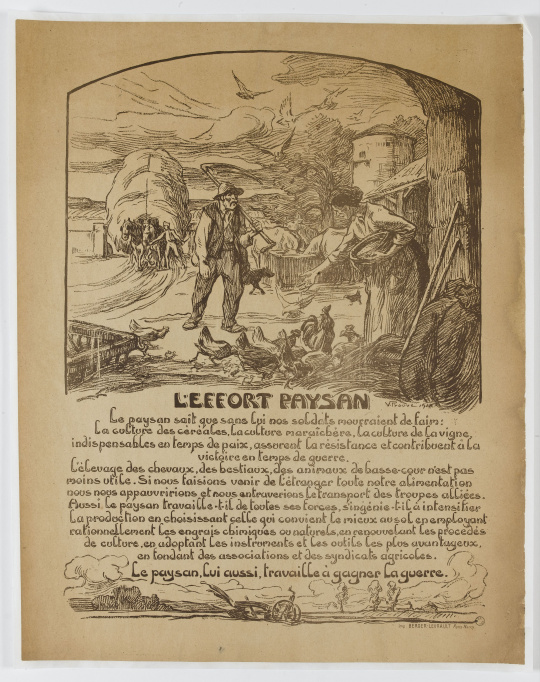 L'EFFORT PAYSAN
Le paysan sait que sans lui nos soldats mourraient de faim:
La culture des céréales, la culture maraîchère, la culture de la vigne,
indispensables en temps de paix, assurent la résistance et contribuent à la
victoire en temps de guerre.
L'élevage des chevaux, des bestiaux, des animaux de basse-cour n'est pas
moins utile. Si nous faisions venir de l'étranger toute notre alimentation
nous nous appauvririons et nous entraverions le transport des troupes alliées.
Aussi, le paysan travaille-t-il de toutes ses forces, s'ingénie-t-il à intensifier
la production en choisissant celle qui convient le mieux au sol en employant
rationnellement les engrais chimiques ou naturels, en renouvelant les procédés
de culture, en adoptant les instruments et les outils les plus avantageux,
en fondant des associations et des syndicats agricoles.
Le paysan, lui aussi, travaille à gagner la guerre.
Imp. BERGER-LEVRAULT